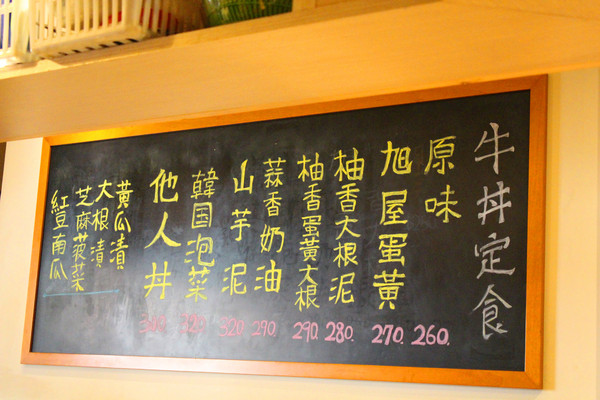 牛丼定食
原味 260.
旭屋蛋黃 270.
柚香大根泥 280.
柚香蛋黃大根 290.
蒜香奶油 290.
山芋泥 320.
韓国泡菜 320.
他人丼
黃瓜漬
大根漬
芝麻菠菜
紅豆南瓜